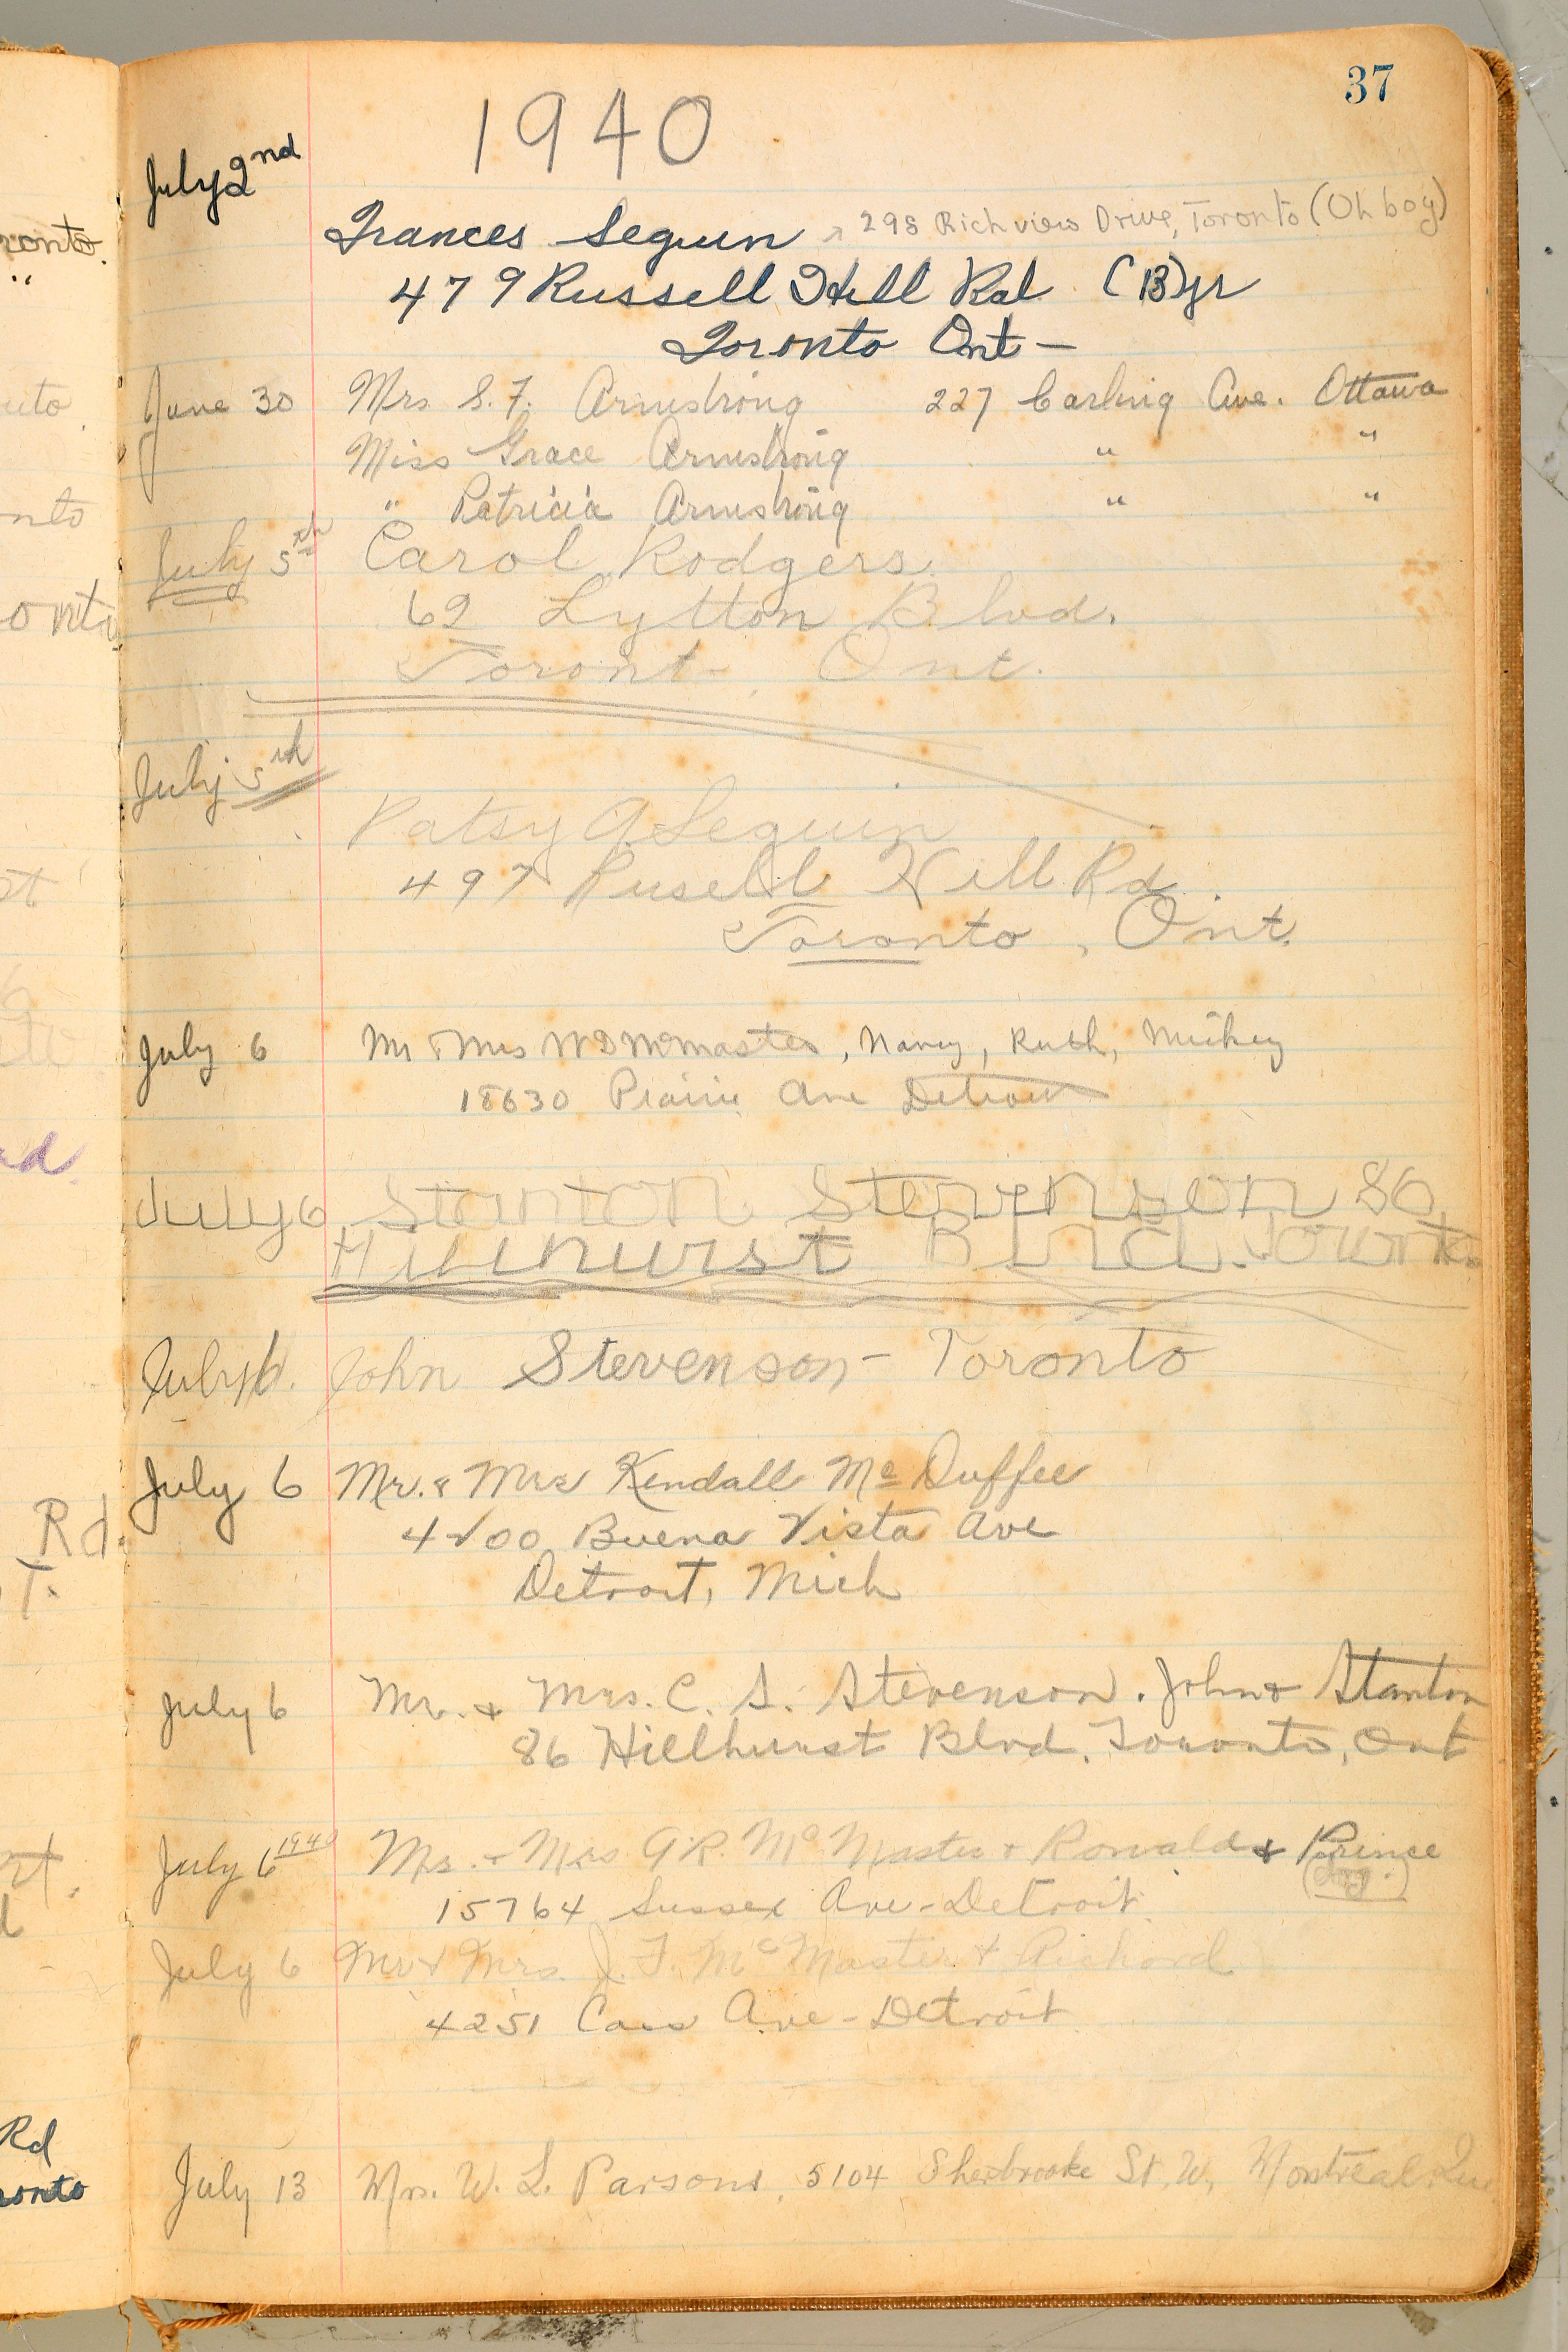 37
1940
July 2nd
Frances Seguin 298 Richview Drive, Toronto (Oh boy)
479 Russell Hill Rd (13) yr
Toronto Ont —
June 30 Mrs S. F. Armstrong 227 Carling Ave. Ottawa
Miss Grace Armstrong " "
" Patricia Armstrong " "
July 5th Carol Rodgers.
62 Lytton Blvd.
Toront Ont.
July 5th
Patsy A Seguin
497 Rusell Hill Rd.
Toronto, Ont.
July 6 Mr & Mrs W D McMaster, Nancy, Ruth, Mickey
18630 Prairie Ave Detroit
July 6 Stanton Stevenson 86
Hillhurst Blvd. Toronto.
July 6. John Stevenson - Toronto
July 6 Mr. & Mrs Kendall Mc Duffee
4200 Buena Vista Ave
Detroit, Mich
July 6 Mr. & Mrs. C. S. Stevenson. John & Stanton
86 Hillhurst Blvd. Toronto, Ont
July 6 1940 Mr. & Mrs G R. Mc Master & Ronald & Prince
(dog.)
15764 Sussex Ave - Detroit.
July 6 Mr & Mrs. J. F. Mc Master & Richard
4251 Cass Ave - Detroit
July 13 Mrs. W. L. Parsons, 5104 Sherbrooke St. W, Montreal, Que